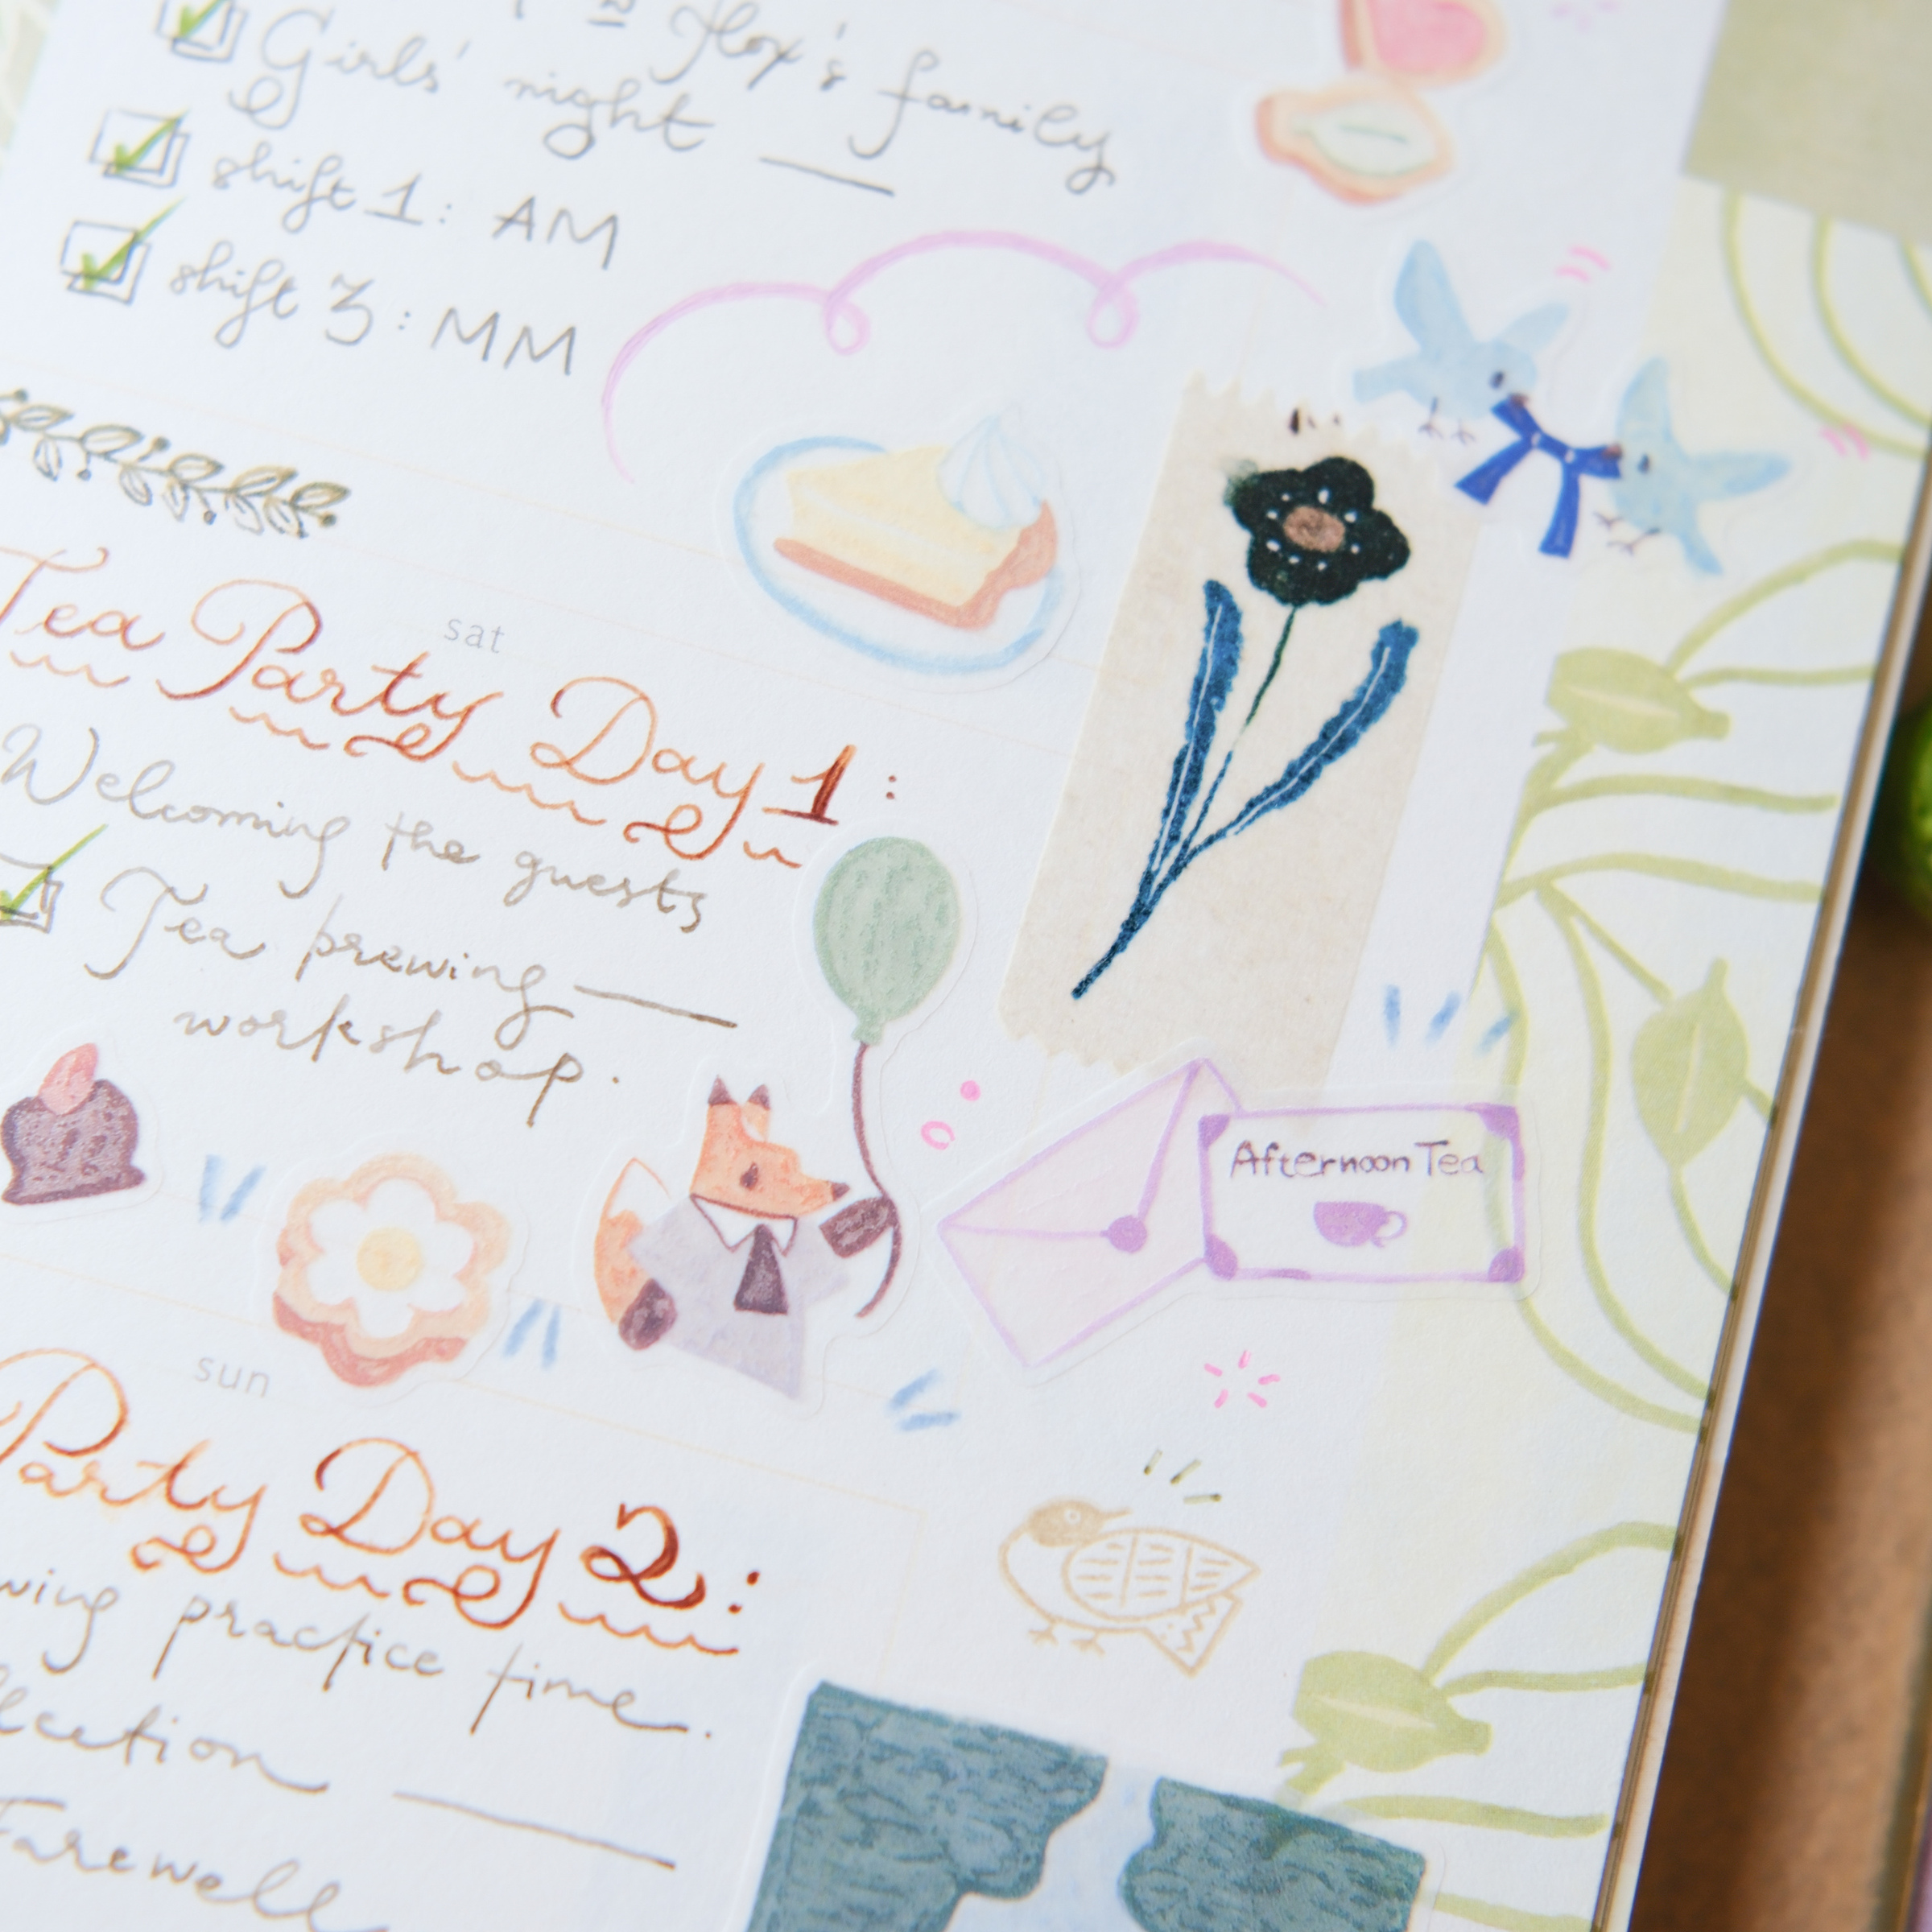 Hox's family
Girls' night
shift 1: AM
shift 3: MM
sat
Tea Party Day 1:
Welcoming the guests
Tea brewing
workshop.
Afternoon Tea
sun
Party Day 2:
practice time.
Farewell